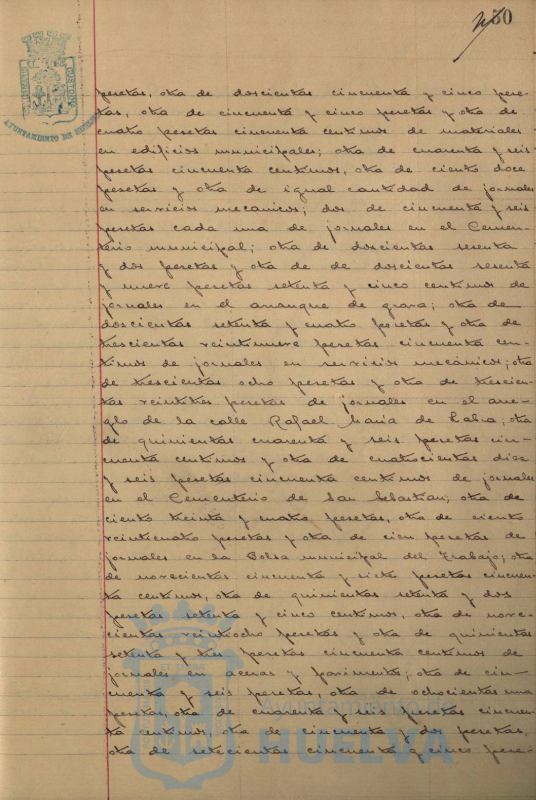 30
AYUNTAMIENTO DE HUELVA
pesetas, otra de doscientas cincuenta y cinco pese-
tas, otra de cincuenta y cinco pesetas y otra de
cuatro pesetas cincuenta centimos de materiales
en edificios municipales; otra de cuarenta y seis
pesetas cincuenta centimos, otra de ciento doce
pesetas y otra de igual cantidad de jornales
en servicios mecanicos; dos de cincuenta y seis
pesetas cada una de jornales en el Cemen-
terio municipal; otra de doscientas sesenta
y dos pesetas y otra de de doscientas sesenta
y nueve pesetas setenta y cinco centimos de
jornales en el arranque de grava; otra de
doscientas setenta y cuatro pesetas y otra de
trescientas veintinueve pesetas cincuenta cen-
timos de jornales en servicios mecánicos; otra
de trescientas ocho pesetas y otra de trescien-
tas veintitres pesetas de jornales en el arre-
glo de la calle Rafael María de Labra; otra
de quinientas cuarenta y seis pesetas cin-
cuenta centimos y otra de cuatrocientas diez
y seis pesetas cincuenta centimos de jornales
en el Cementerio de San Sebastian; otra de
ciento treinta y cuatro pesetas, otra de ciento
veinticuatro pesetas y otra de cien pesetas de
jornales en la Bolsa municipal del Trabajo; otra
de novecientas cincuenta y siete pesetas cincuen-
ta centimos, otra de quinientas setenta y dos
pesetas setenta y cinco centimos, otra de nove-
cientas veintiocho pesetas y otra de quinientas
setenta y tres pesetas cincuenta centimos de
jornales en aceras y pavimentos; otra de cin-
cuenta y seis pesetas, otra de ochocientas una
pesetas, otra de cuarenta y seis pesetas cincuen-
ta centimos, otra de cincuenta y dos pesetas,
otra de setecientas cincuenta y cinco pese-
Ayuntamiento de
HUELVA